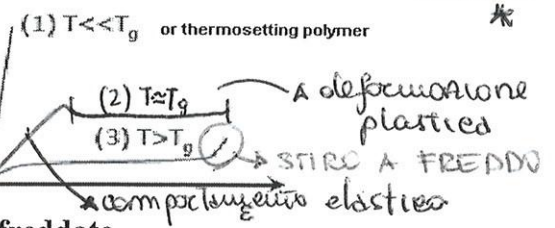 (1) T<<Tg or thermosetting polymer
(2) T≃Tg
deformazione
plastica
(3) T>Tg
STIRO A FREDDO
comportamento elastico
ε